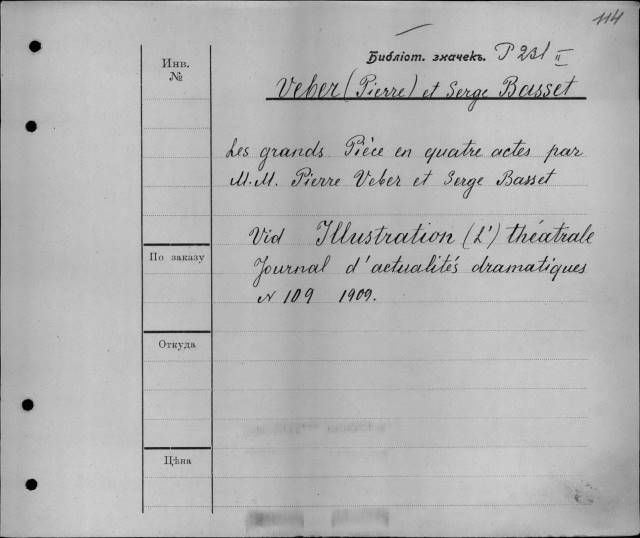 114
Библіот. значекъ. P 231 II
Инв.
№
Veber (Pierre) et Serge Basset
Les grands Pièce en quatre actes par
M.M. Pierre Veber et Serge Basset
Vid Illustration (L') théatrale
По заказу
Journal d'actualités dramatiques
N 109 1909.
Откуда
Цѣна